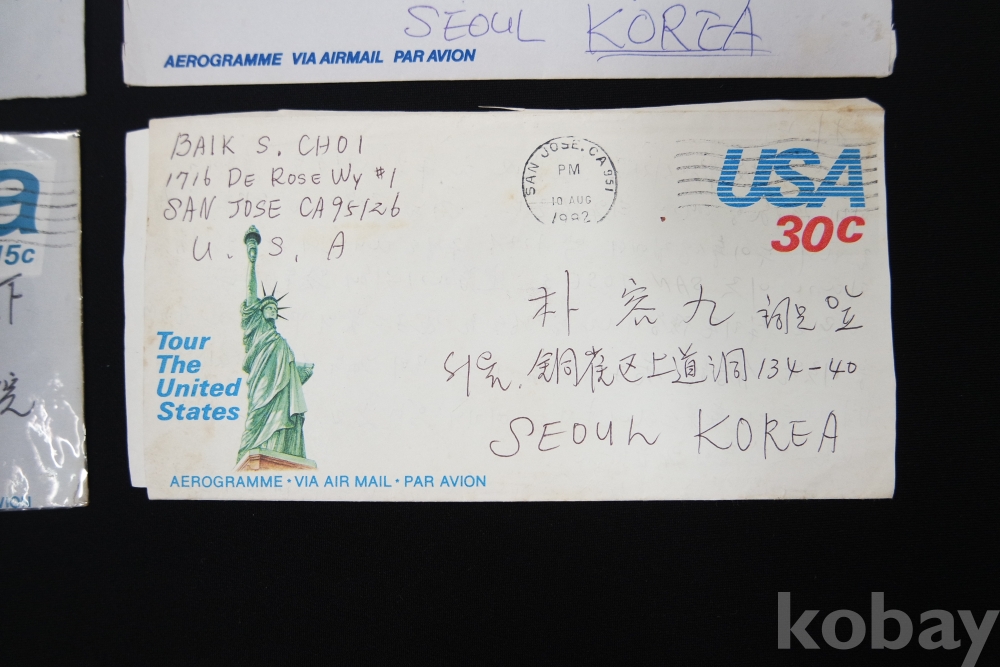 SEOUL KOREA
AEROGRAMME VIA AIRMAIL PAR AVION
15c
下
院
BAIK S. CHOI
1716 DE ROSE WY #1
SAN JOSE CA 95126
U. S. A
SAN JOSE. CA 951
PM
10 AUG
1982
USA
30c
Tour
The
United
States
朴 容 九
서울. 銅雀区上道洞 134-40
SEOUL KOREA
AEROGRAMME · VIA AIR MAIL · PAR AVION
kobay